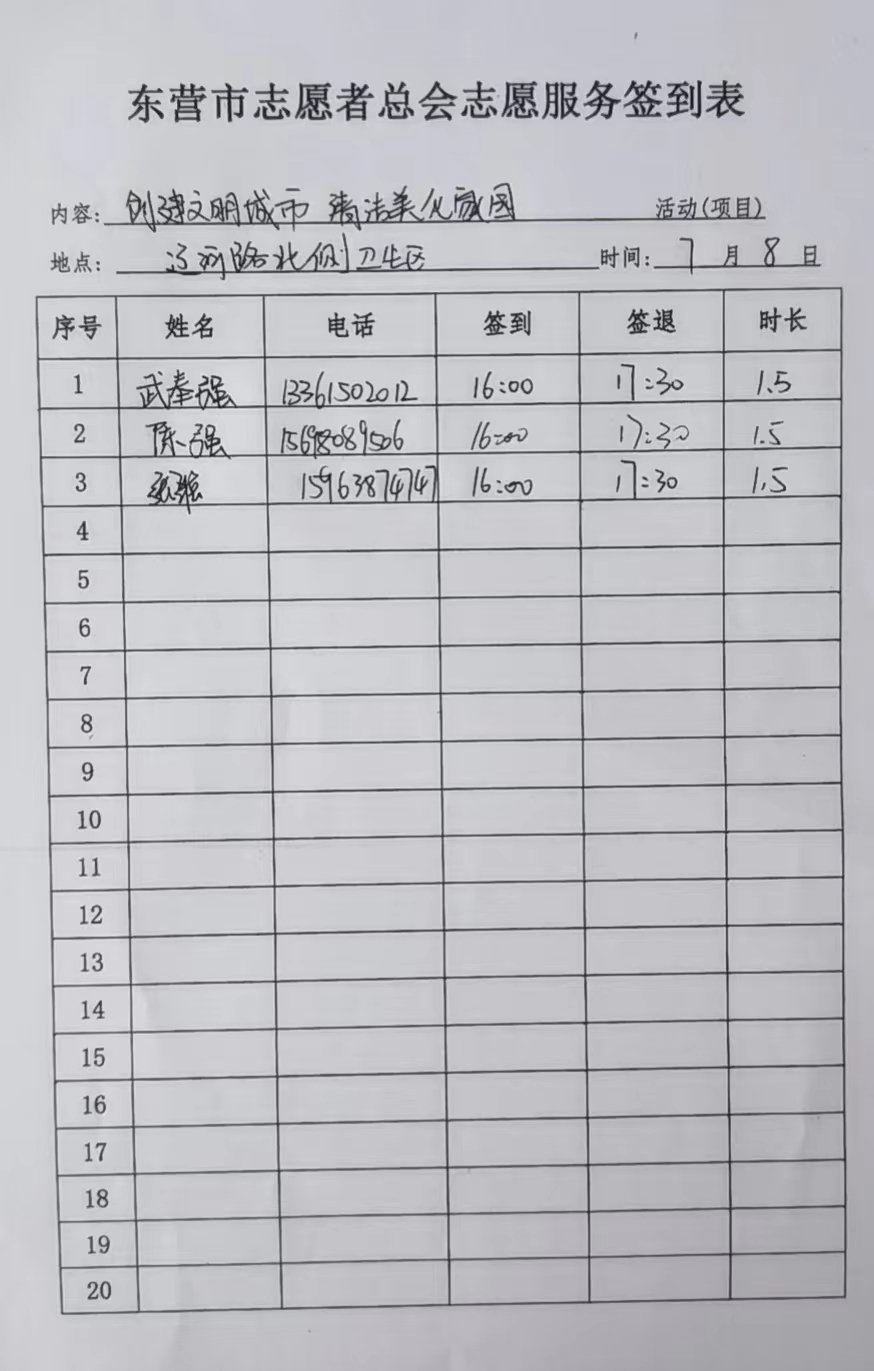 东营市志愿者总会志愿服务签到表
内容: 创建文明城市 清洁美化家园 活动(项目)
地点: 辽河路北侧卫生区 时间: 7 月 8 日
序号 姓名 电话 签到 签退 时长
1 武奉强 13361502012 16:00 17:30 1.5
2 陈强 15698089506 16:00 17:30 1.5
3 15963874747 16:00 17:30 1.5
4
5
6
7
8
9
10
11
12
13
14
15
16
17
18
19
20